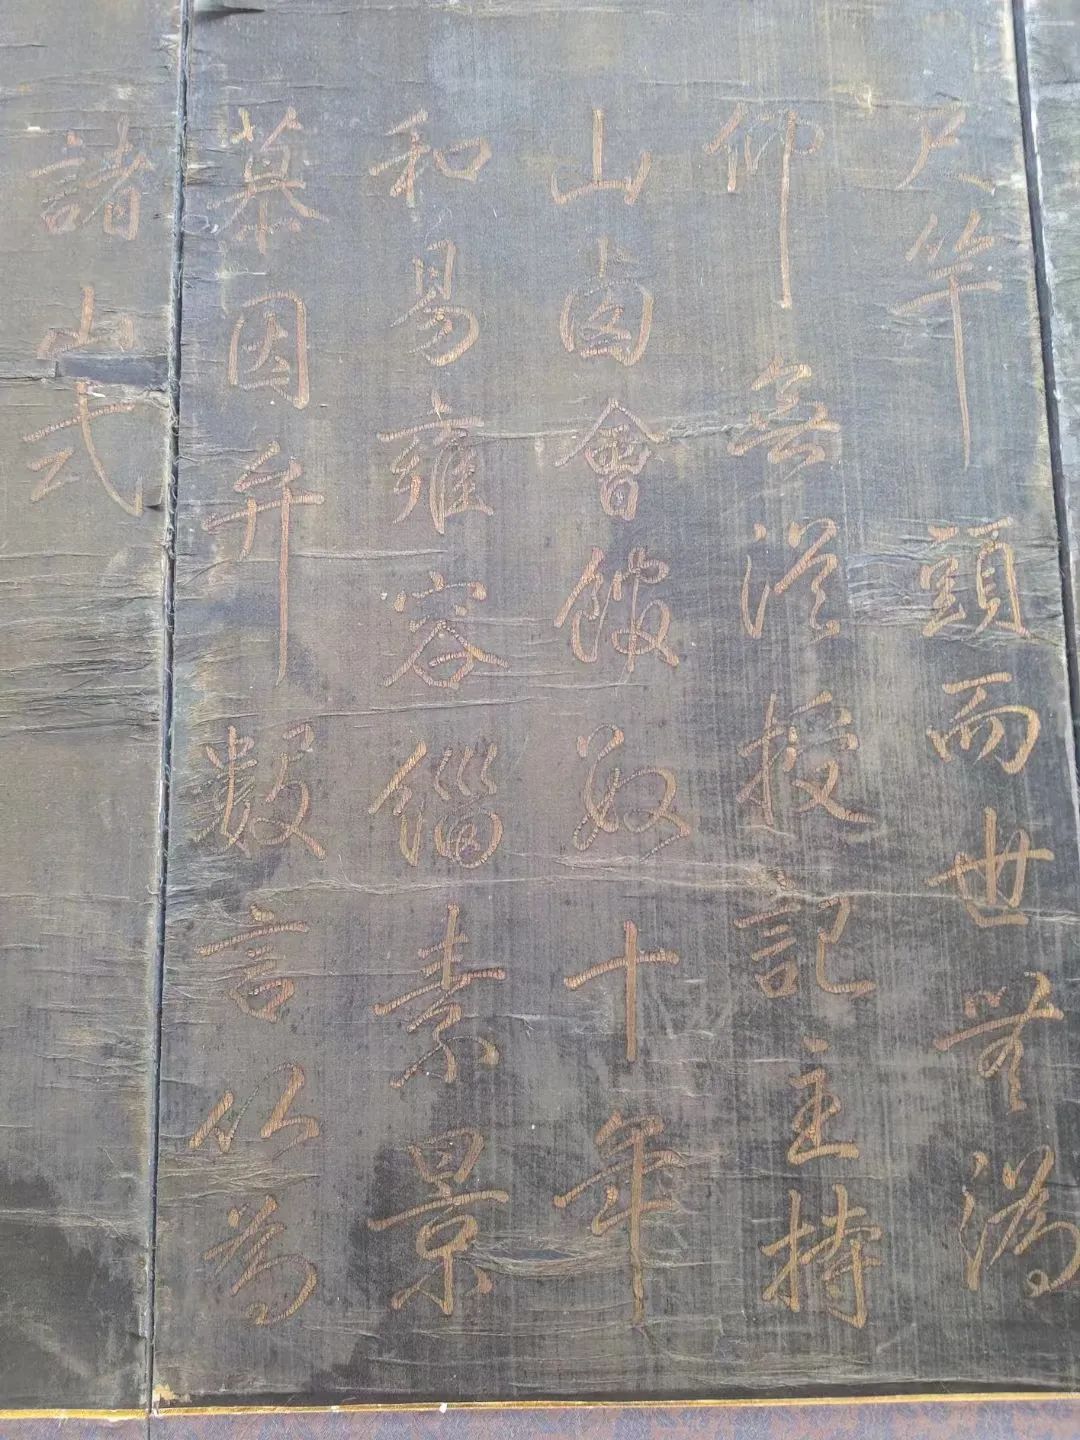 尺竿頭而世
仰無從授記主持
山鹵會館數十年
和易雍容緇素景
慕因弁數言以為
諸山式